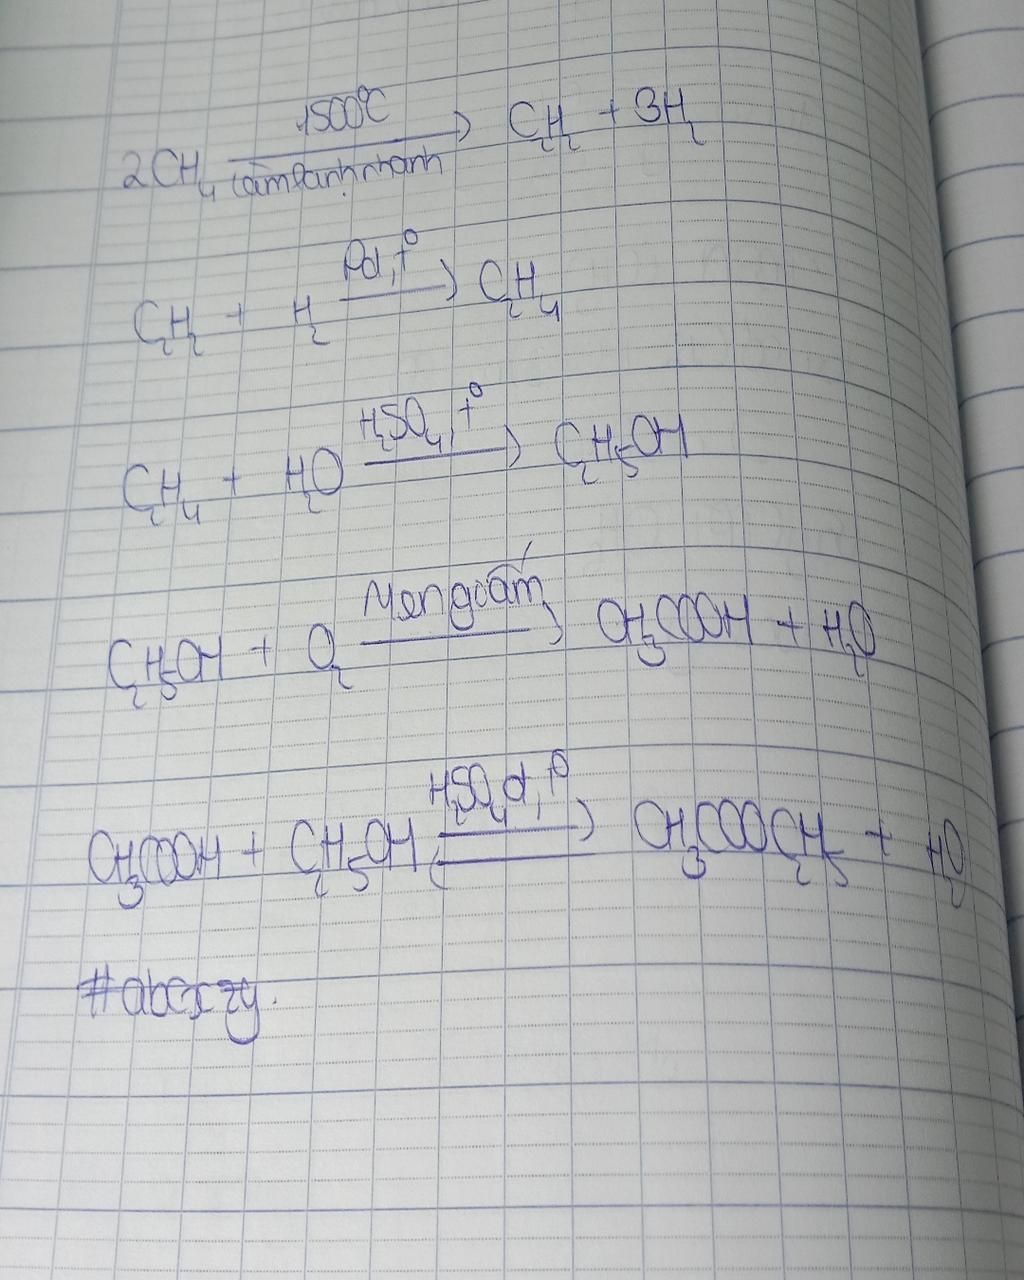 2CH₄ 1500°C làm lạnh nhanh → C₂H₂ + 3H₂
C₂H₂ + H₂ Pd, t° → C₂H₄
C₂H₄ + H₂O H₂SO₄, t° → C₂H₅OH
C₂H₅OH + O₂ Men giấm → CH₃COOH + H₂O
CH₃COOH + C₂H₅OH H₂SO₄ đ, t° ⇌ CH₃COOC₂H₅ + H₂O